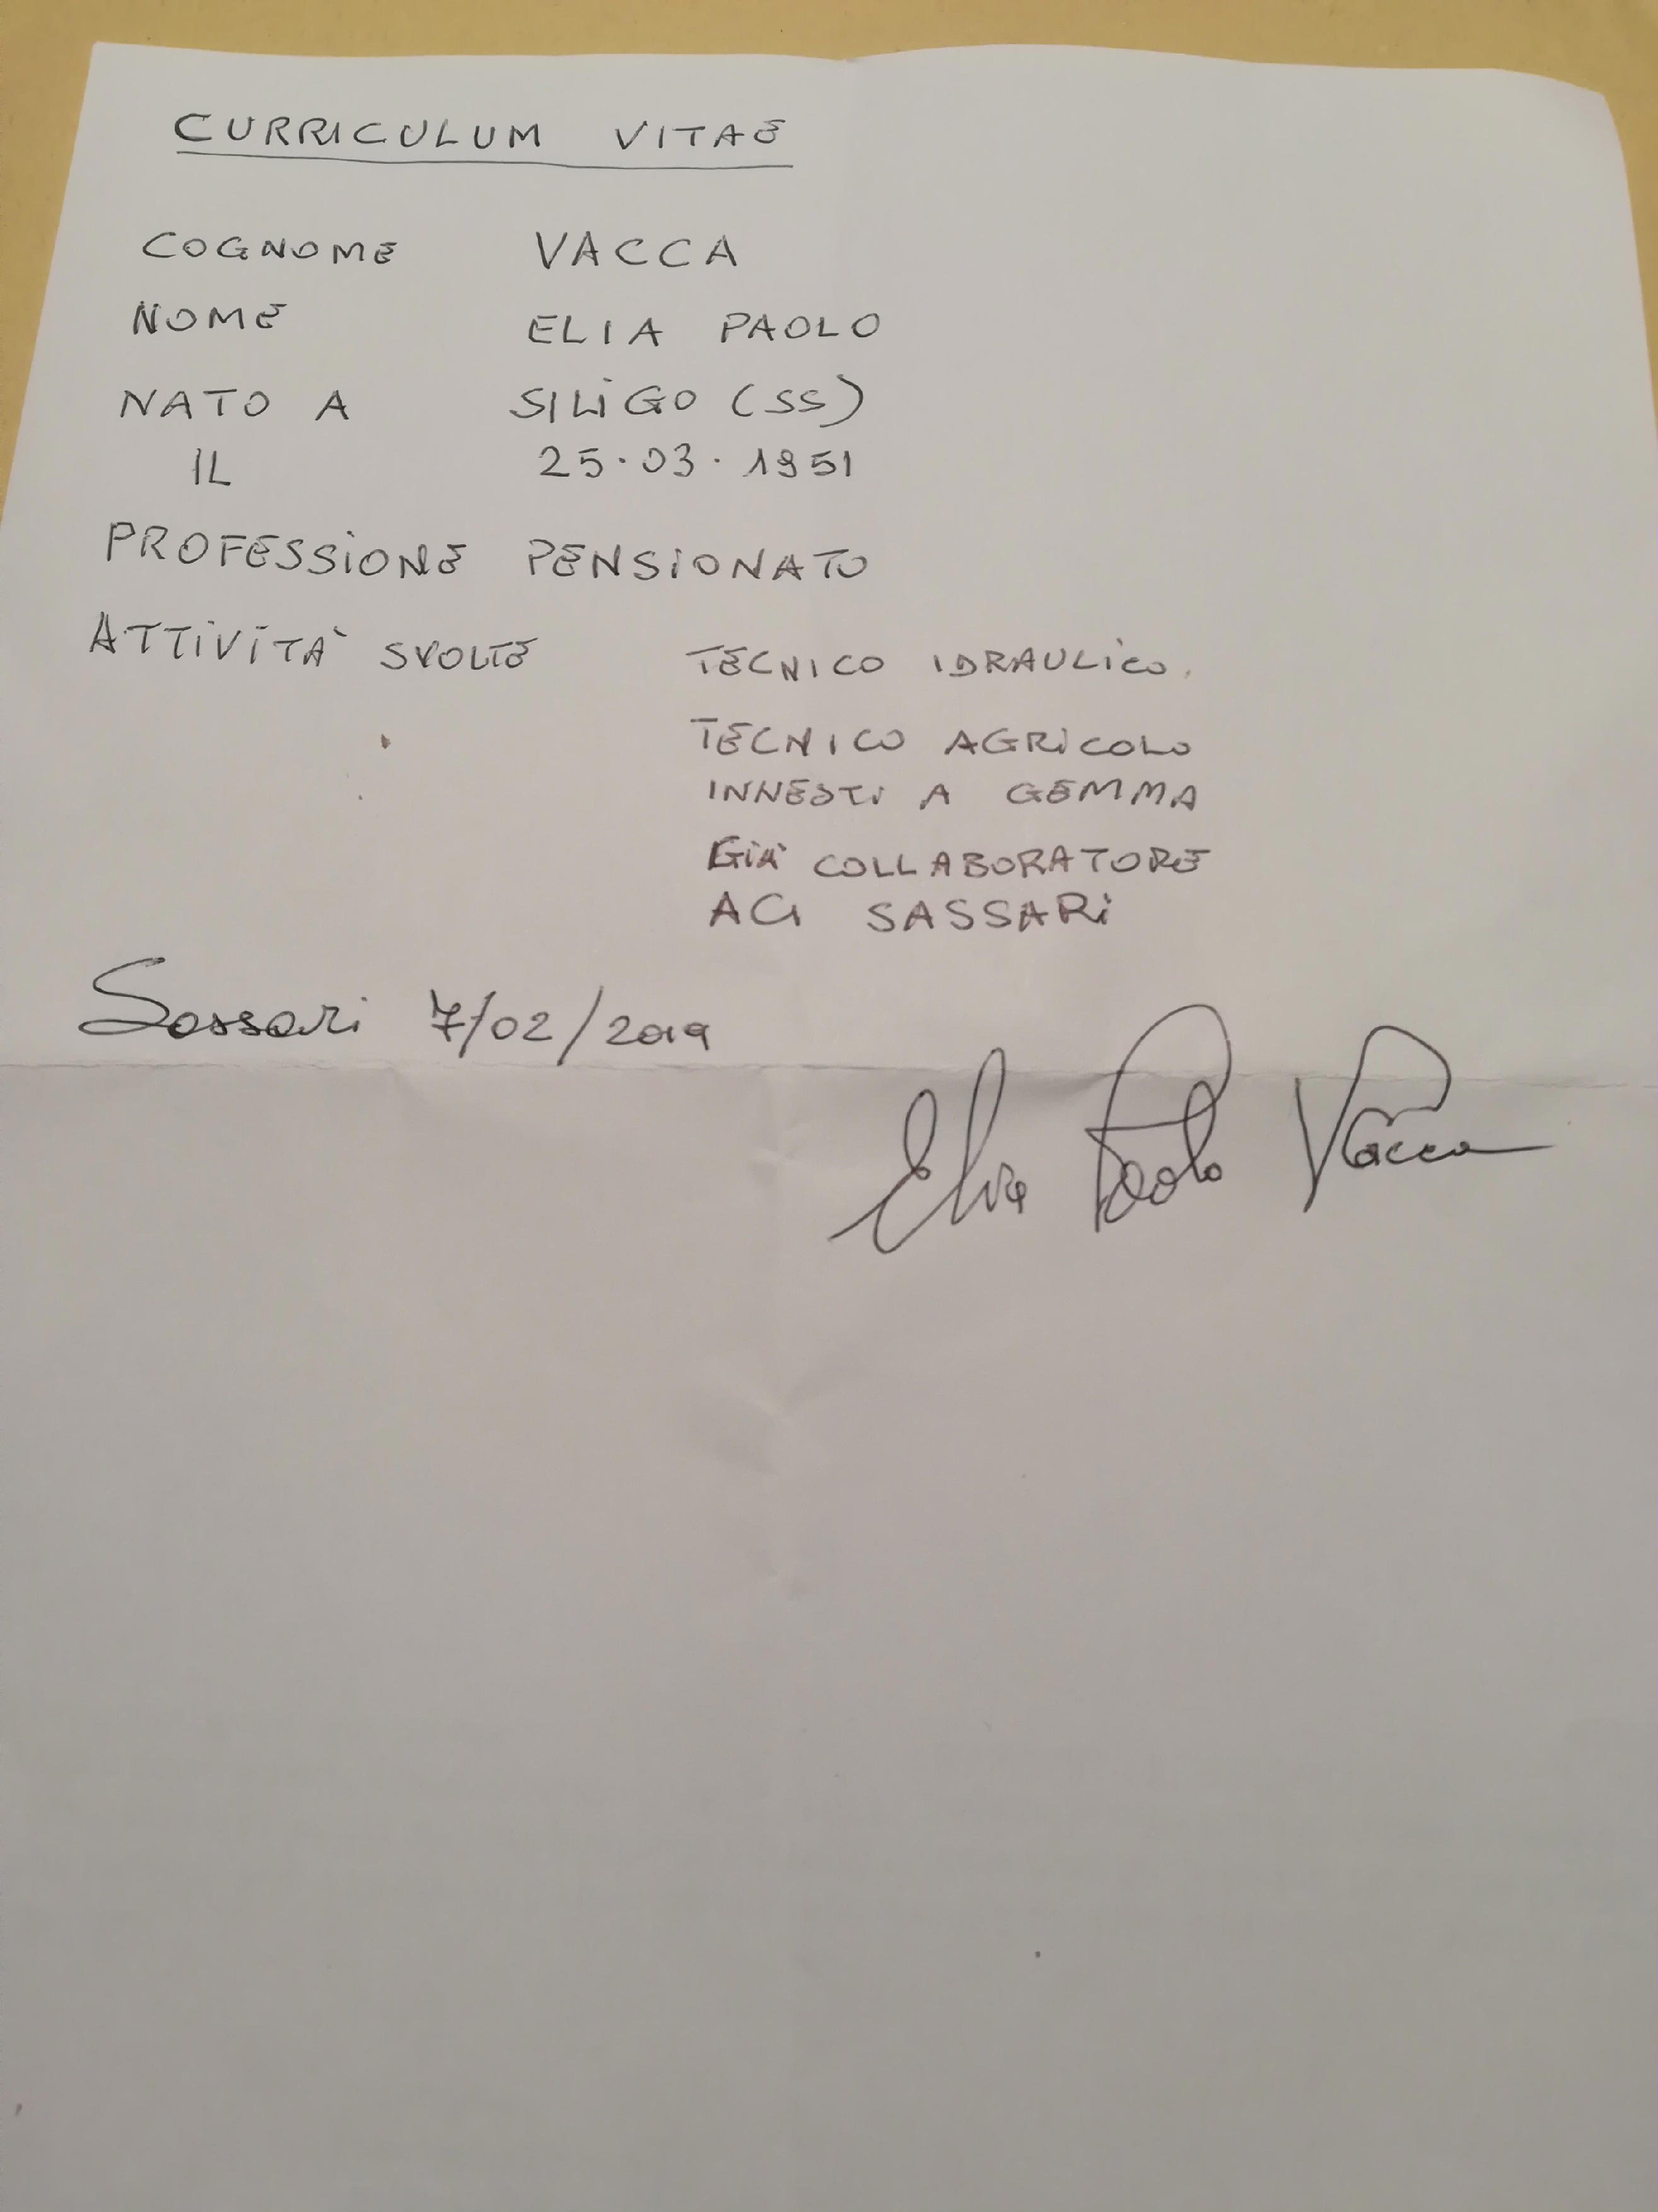 CURRICULUM VITAE
COGNOME VACCA
NOME ELIA PAOLO
NATO A SILIGO (SS)
IL 25.03.1951
PROFESSIONE PENSIONATO
ATTIVITÀ SVOLTE TECNICO IDRAULICO.
TECNICO AGRICOLO
INNESTI A GEMMA
GIÀ COLLABORATORE
ACI SASSARI
Sassari 7/02/2019
Elia Paolo Vacca